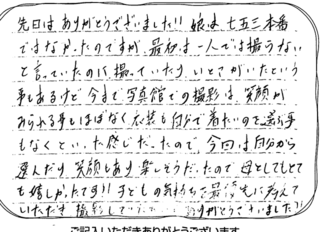 先日は ありがとうございました!! 娘は 七五三本番
ではなかったのですが、最初は 一人では撮らない
と言っていたのに 撮っていたり、いとこがいたという
事もあるけど 今まで写真館での撮影は 笑顔が
みられる事はほぼなく 衣装も自分で着たいので選ぶ事
もなくといった感じだったので、今回は自分から
選んだり、笑顔もあり 楽しそうだったので 母としてもとて
も嬉しかったです!! 子どもの気持ちを最優先に考えて
いただき 撮影して ありがとうございました!!
ご記入いただきありがとうございます